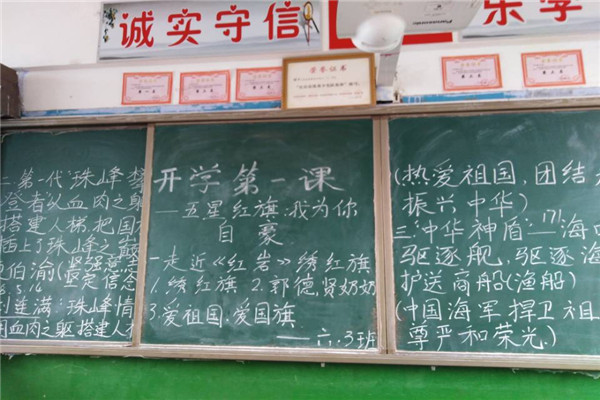 诚实守信
乐学
Panasonic
荣誉证书
二 第一代:珠峰
含者以血肉之躯
搭建人梯,把国
西上了珠峰之巅
(坚强意志
坚定信念
珠峰情
血肉之躯搭建人
开学第一课
——五星红旗,我为你
自豪
一走近《红岩》绣红旗
1.绣红旗 2.郭德贤奶奶
3.爱祖国,爱国旗
——六.3班
(热爱祖国,团结
振兴中华)
三:中华神盾:171——海口
驱逐舰,驱逐海
护送商船(渔船)
(中国海军捍卫祖
尊严和荣光.)